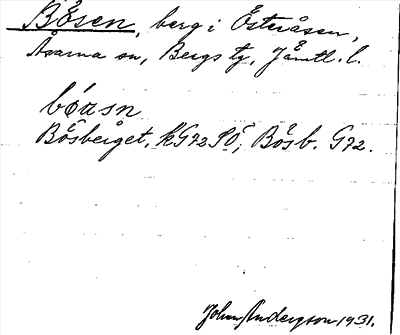 Bösen, berg i Österåsen,
Åsarna sn, Bergs tg, Jämtl. l.
bóasn
Bösberget, kG72SO; Bösb. G72.
John Andersson 1931.